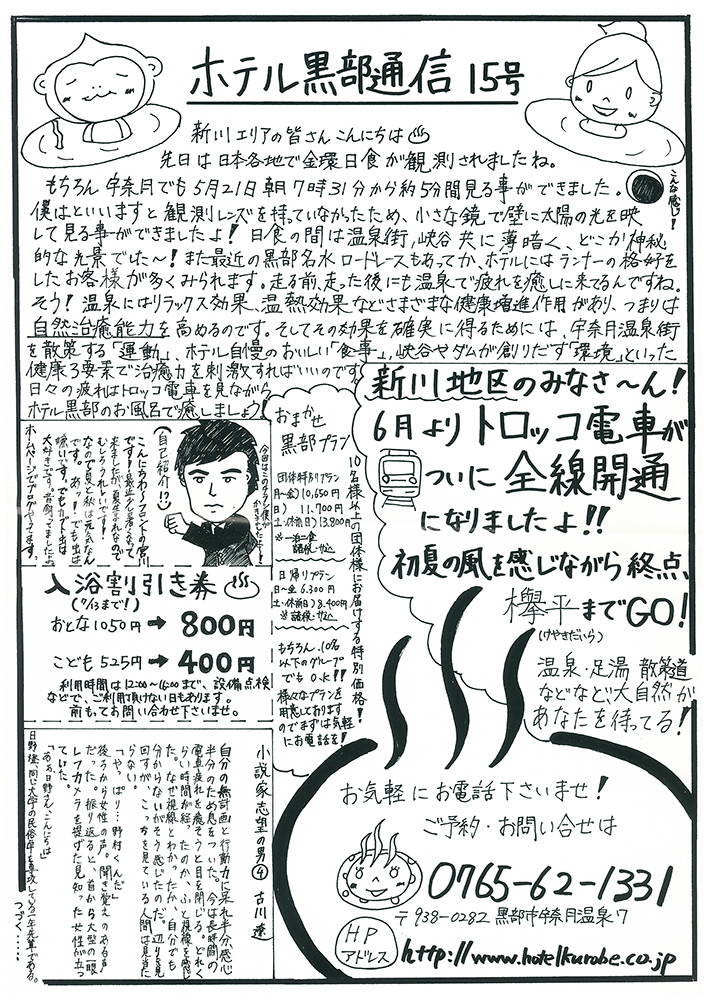 ホテル黒部通信 15号
新川エリアの皆さんこんにちは♨
先日は日本各地で金環日食が観測されましたね。
もちろん宇奈月でも5月21日朝7時31分から約5分間見る事ができました。
こんな感じ!
僕はといいますと観測レンズを持っていなかったため、小さな鏡で壁に太陽の光を映
して見る事ができましたよ!日食の間は温泉街、峡谷共に薄暗く、どこか神秘
的な光景でした〜!また最近の黒部名水ロードレースもあってか、ホテルにはランナーの格好を
したお客様が多くみられます。走る前、走った後にも温泉で疲れを癒しに来てるんですね。
そう!温泉にはリラックス効果、温熱効果などさまざまな健康増進作用があり、つまりは
自然治癒能力を高めるのです。そしてその効果を確実に得るためには、宇奈月温泉街
を散策する「運動」、ホテル自慢のおいしい「食事」、峡谷やダムが創りだす「環境」といった
健康3要素で治癒力を刺激すればいいのです
日々の疲れはトロッコ電車を見ながら
ホテル黒部のお風呂で癒しましょう!
新川地区のみなさ〜ん!
6月よりトロッコ電車が
ついに全線開通
になりましたよ!!
初夏の風を感じながら終点、
欅平までGO!
(けやきだいら)
温泉・足湯 散策道
などなど、大自然が
あなたを待ってる!
(自己紹介!?)
こんにちわ〜フロントの宮川
です!最近少し暑くなって
来ましたが、夏生まれなので
むしろうれしいです!
なので夏と秋は元気なん
です。あっ!でも虫は
嫌いです。でもカブト虫は
大好きです。昔飼ってましたよ
ホームページでブログやってます。
おまかせ
黒部プラン
10名様以上の団体様にお届けする特別価格!
団体特別プラン
月〜金)10,650円
日) 11,700円
土・休前日)13,800円
※一泊二食
諸税・サ込
日帰りプラン
日〜金 6,300円
土・休前日)8,400円
※諸税・サ込
もちろん、10名
以下のグループ
でもO.K!!
様々なプランを
用意しております
のでまずは気軽
にお電話を!
入浴割引き券♨
(7/13まで!)
おとな1050円→800円
こども525円→400円
利用時間は12:00〜16:00まで、設備点検
などで、ご利用頂けない日もあります。
前もってお問い合わせ下さいませ。
小説家志望の男④ 古川遼
自分の無計画と行動力に呆れ半分、感心
半分のため息をついた。今は長時間の
電車疲れを癒そうと目を閉じる。どれく
らい時間が経ったのか、ふと視線を感じ
た。なぜ視線とわかったか、自分でも
分からないがそう感じたのだ。辺りを見
回すが、こっちを見ている人間は見当た
らない。
「やっぱり…野村くんだ」
後ろから女性の声。聞き覚えのある声
だった。振り返ると、首から大型の一眼
レフカメラを提げた見知った女性が立っ
ていた。
「ああ日野さん、こんにちは」
つづく……
お気軽にお電話下さいませ!
ご予約・お問い合せは
0765-62-1331
〒938-0282 黒部市宇奈月温泉7
HP
アドレス
http://www.hotelkurobe.co.jp